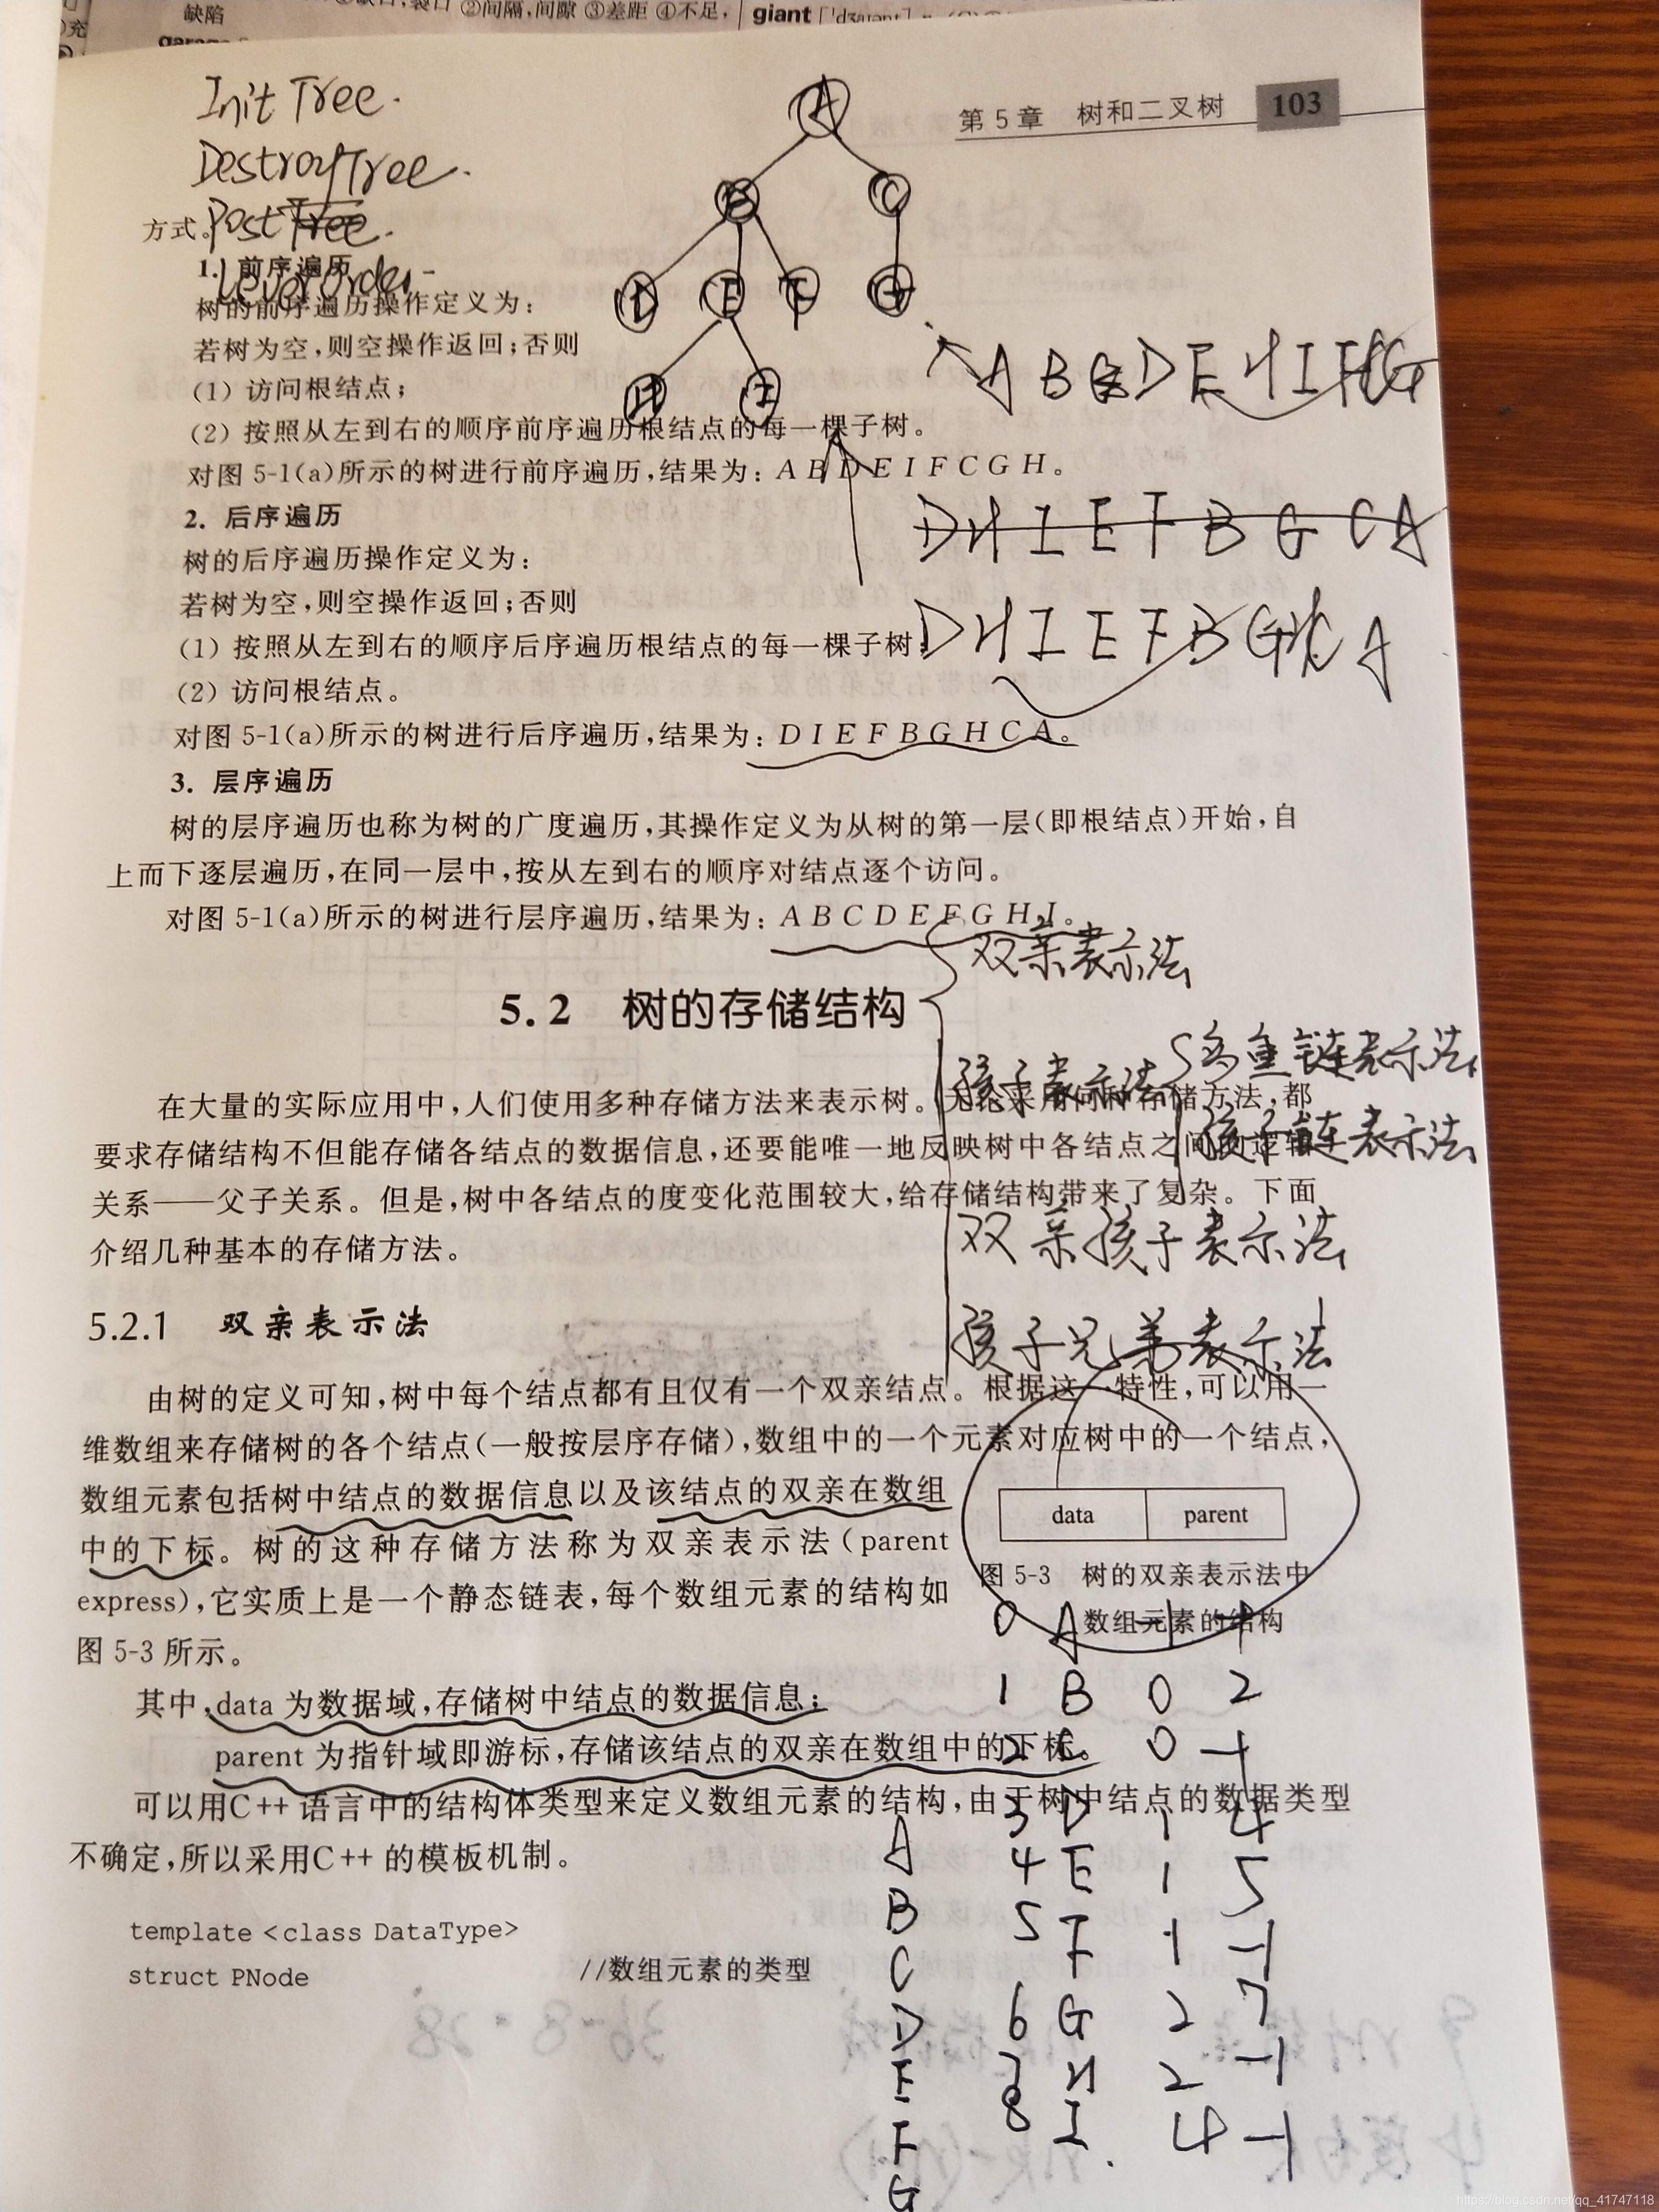 缺陷
②间隔,间隙 ③差距 ④不足,
giant
充
Init Tree.
DestroyTree.
PostTree.
LevelOrder
第 5 章 树和二叉树 103
A
B C
D E F G
H I
方式。
1. 前序遍历
树的前序遍历操作定义为:
若树为空,则空操作返回;否则
(1) 访问根结点;
(2) 按照从左到右的顺序前序遍历根结点的每一棵子树。
对图 5-1(a)所示的树进行前序遍历,结果为: A B D E I F C G H。
A B D E H I F C G
2. 后序遍历
D H I E F B G C A
树的后序遍历操作定义为:
若树为空,则空操作返回;否则
(1) 按照从左到右的顺序后序遍历根结点的每一棵子树;
D H I E F B G C A
(2) 访问根结点。
对图 5-1(a)所示的树进行后序遍历,结果为: D I E F B G H C A。
3. 层序遍历
树的层序遍历也称为树的广度遍历,其操作定义为从树的第一层(即根结点)开始,自
上而下逐层遍历,在同一层中,按从左到右的顺序对结点逐个访问。
对图 5-1(a)所示的树进行层序遍历,结果为: A B C D E F G H I。
双亲表示法
5.2 树的存储结构
孩子表示法
链表示法
孩子链表示法
双亲孩子表示法
孩子兄弟表示法
在大量的实际应用中,人们使用多种存储方法来表示树。无论采用何种存储方法,都
要求存储结构不但能存储各结点的数据信息,还要能唯一地反映树中各结点之间的逻辑
关系——父子关系。但是,树中各结点的度变化范围较大,给存储结构带来了复杂。下面
介绍几种基本的存储方法。
5.2.1 双亲表示法
由树的定义可知,树中每个结点都有且仅有一个双亲结点。根据这一特性,可以用一
维数组来存储树的各个结点(一般按层序存储),数组中的一个元素对应树中的一个结点,
数组元素包括树中结点的数据信息以及该结点的双亲在数组
中的下标。树的这种存储方法称为双亲表示法(parent
express),它实质上是一个静态链表,每个数组元素的结构如
图 5-3 所示。
data parent
图 5-3 树的双亲表示法中
数组元素的结构
其中,data 为数据域,存储树中结点的数据信息;
parent 为指针域即游标,存储该结点的双亲在数组中的下标。
可以用C++ 语言中的结构体类型来定义数组元素的结构,由于树中结点的数据类型
不确定,所以采用C++ 的模板机制。
template <class DataType>
struct PNode //数组元素的类型
0 A -1
1 B 0 2
2 C 0 -1
3 D 1 4
4 E 1 5
5 F 1 -1
6 G 2 7
7 H 2 -1
8 I 4 -1
A
B
C
D
E
F
G
https://blog.csdn.net/qq_41747118